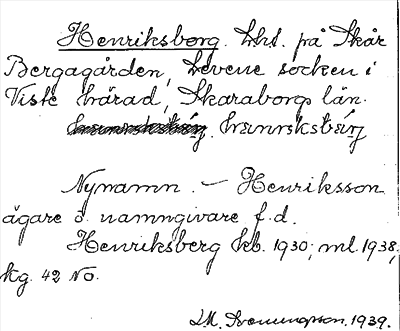 Henriksberg. Lht. på Skår
Bergagården, Levene socken i
Viste härad, Skaraborgs län.
hænrıksbärj
Nynamn. — Henriksson
ägare o. namngivare f.d.
Henriksberg kb. 1930; ml. 1938,
kg. 42 No.
1939.